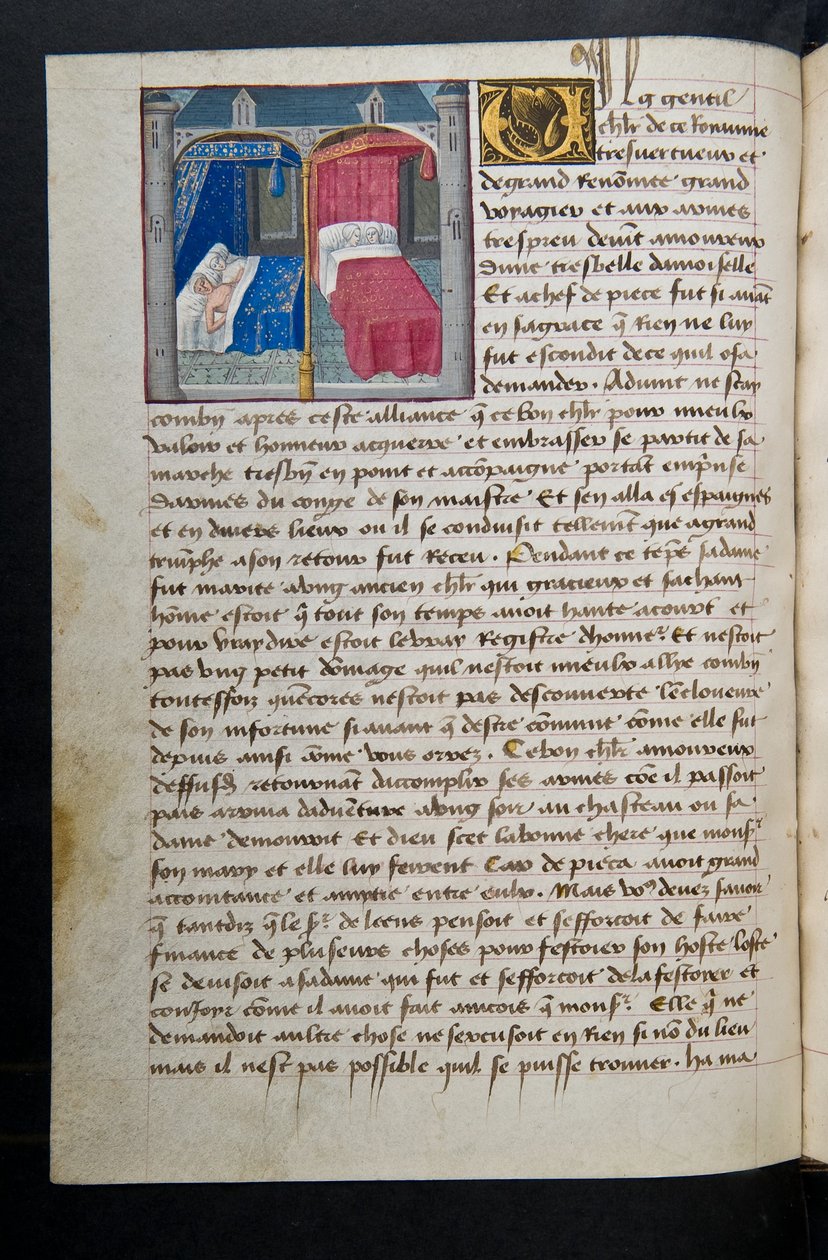 Ug gentil
chlr de ce Royaume
tresvertueux et
de grand Renōmee grand
voyagier et aux armes
trespreu devīt amoureux
dune tresbelle damoiselle
Et achef de piece fut si auāt
en sa grace q̄ Rien ne luy
fut escondit de ce quil osa
demander . Aduint ne scay
combīn apres ceste alliance q̄ ce bon chlr pour mieulx
valoir et honneur acquerre et embrasser se partit de sa
marche tresbīn en point et accōpaigne portāt emp̄nse
darmes du conge de son maistre Et sen alla es espaignes
et en diuers lieux ou il se conduisit tellemīt que agrand
triūphe a son retour fut Receu . Pendant ce tēps sa dame
fut mariee a vng ancien chlr qui gracieux et sachant
hōme estoit q̄ tout son temps auoit hante acourt et
pour vray dire estoit le vray Registre dhonneʳ. Et nestoit
pas vng petit dōmage quil nestoit mieulx allye combīn
toutesfoiz quēcores nestoit pas descouuerte lēcloueure
de son infortune si auant q̄ destre cōmune cōme elle fut
depuis ainsi cōme vous orrez . Ce bon chlr amoureux
dessusd retournāt daccomplir ses armes cōe il passoit
pais arriua daduēture a vng soir au chasteau ou sa
dame demouroit Et dieu scet la bonne chere que monsʳ
son mary et elle luy feirent Car de pieca auoit grand
accointance et amytie entre eulx . Mais voꝰ deuez sauoir
q̄ tantdiz q̄ le sʳ de leens pensoit et sefforcoit de faire
finance de pluseurs choses pour festoier son hoste loste
se deuisoit a sa dame qui fut et sefforcoit de la festoyer et
conJoyr cōme il auoit fait aincois q̄ monsʳ. Elle q̄ ne
demandoit aultre chose ne sexcusoit en Rien si nō du lieu
mais il nest pas possible quil se puisse trouuer . ha ma